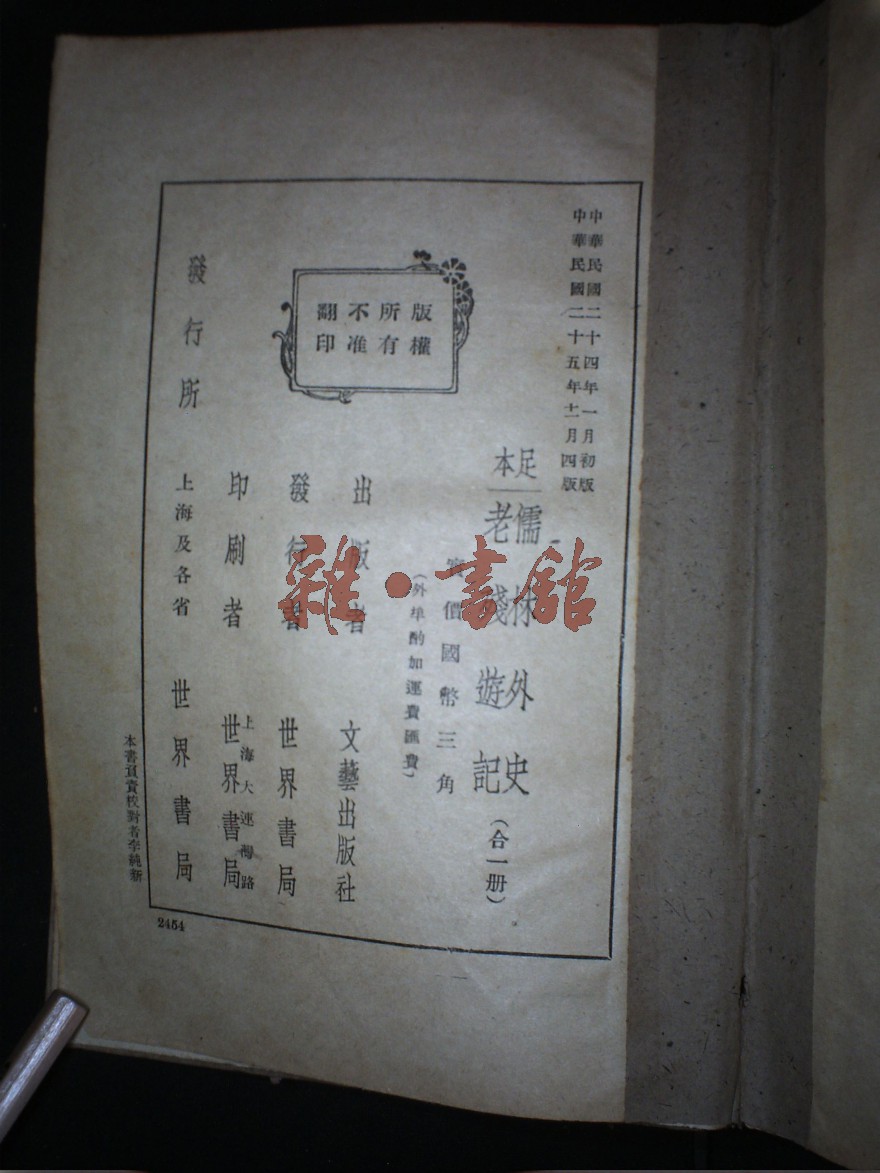 中華民國二十四年一月初版
中華民國二十五年十一月四版
足本
儒林外史
老殘遊記
(合一册)
實價國幣三角
(外埠酌加運費匯費)
版權所有
不准翻印
出版者 文藝出版社
發行者 世界書局
印刷者 上海大連灣路 世界書局
發行所 上海及各省 世界書局
本書負責校對者李純新
2454
雜·書館